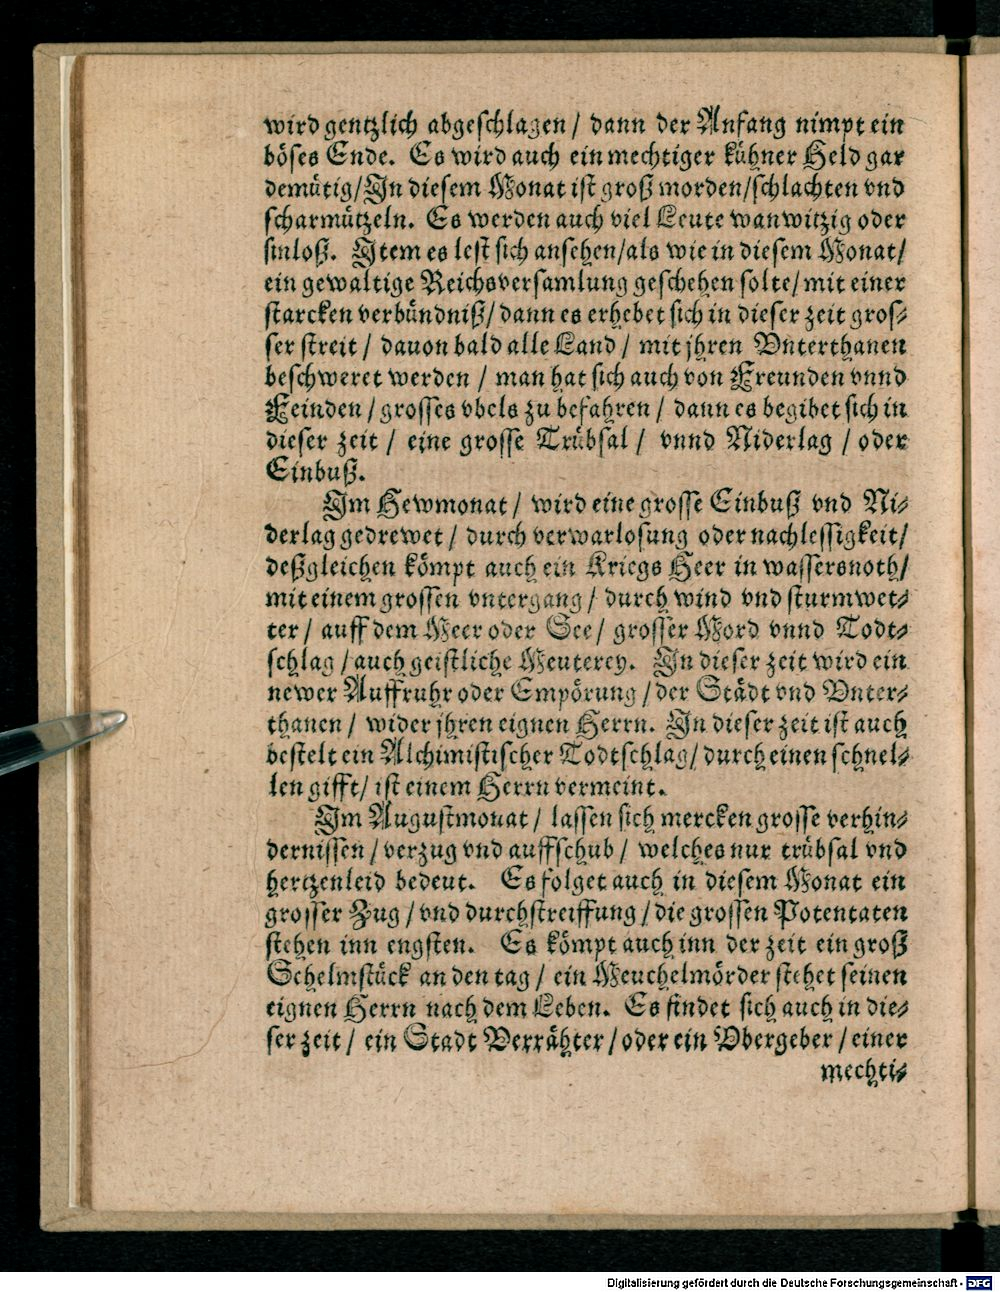 wird gentzlich abgeschlagen / dann der Anfang nimpt ein
böses Ende. Es wird auch ein mechtiger kühner Held gar
demütig/In diesem Monat ist groß morden/schlachten vnd
scharmützeln. Es werden auch viel Leute wanwitzig oder
sinloß. Item es lest sich ansehen/als wie in diesem Monat/
ein gewaltige Reichsversamlung geschehen solte/mit einer
starcken verbündniß/dann es erhebet sich in dieser zeit gros-
ser streit / dauon bald alle Land / mit jhren Vnterthanen
beschweret werden / man hat sich auch von Freunden vnnd
Feinden / grosses vbels zu befahren / dann es begibet sich in
dieser zeit / eine grosse Trübsal / vnnd Niderlag / oder
Einbuß.
Im Hewmonat / wird eine grosse Einbuß vnd Ni-
derlag gedrewet / durch verwarlosung oder nachlessigkeit/
deßgleichen kömpt auch ein Kriegs Heer in wassersnoth/
mit einem grossen vntergang / durch wind vnd sturmwet-
ter / auff dem Meer oder See / grosser Mord vnnd Todt-
schlag / auch geistliche Meuterey. In dieser zeit wird ein
newer Auffruhr oder Empörung / der Städt vnd Vnter-
thanen / wider jhren eignen Herrn. In dieser zeit ist auch
bestelt ein Alchimistischer Todtschlag/durch einen schnel-
len gifft/ ist einem Herrn vermeint.
Im Augustmonat / lassen sich mercken grosse verhin-
dernissen / verzug vnd auffschub / welches nur trübsal vnd
hertzenleid bedeut. Es folget auch in diesem Monat ein
grosser Zug / vnd durchstreiffung / die grossen Potentaten
stehen inn engsten. Es kömpt auch inn der zeit ein groß
Schelmstück an den tag / ein Meuchelmörder stehet seinen
eignen Herrn nach dem Leben. Es findet sich auch in die-
ser zeit / ein Stadt Verrähter / oder ein Vbergeber / einer
mechti-
Digitalisierung gefördert durch die Deutsche Forschungsgemeinschaft - DFG